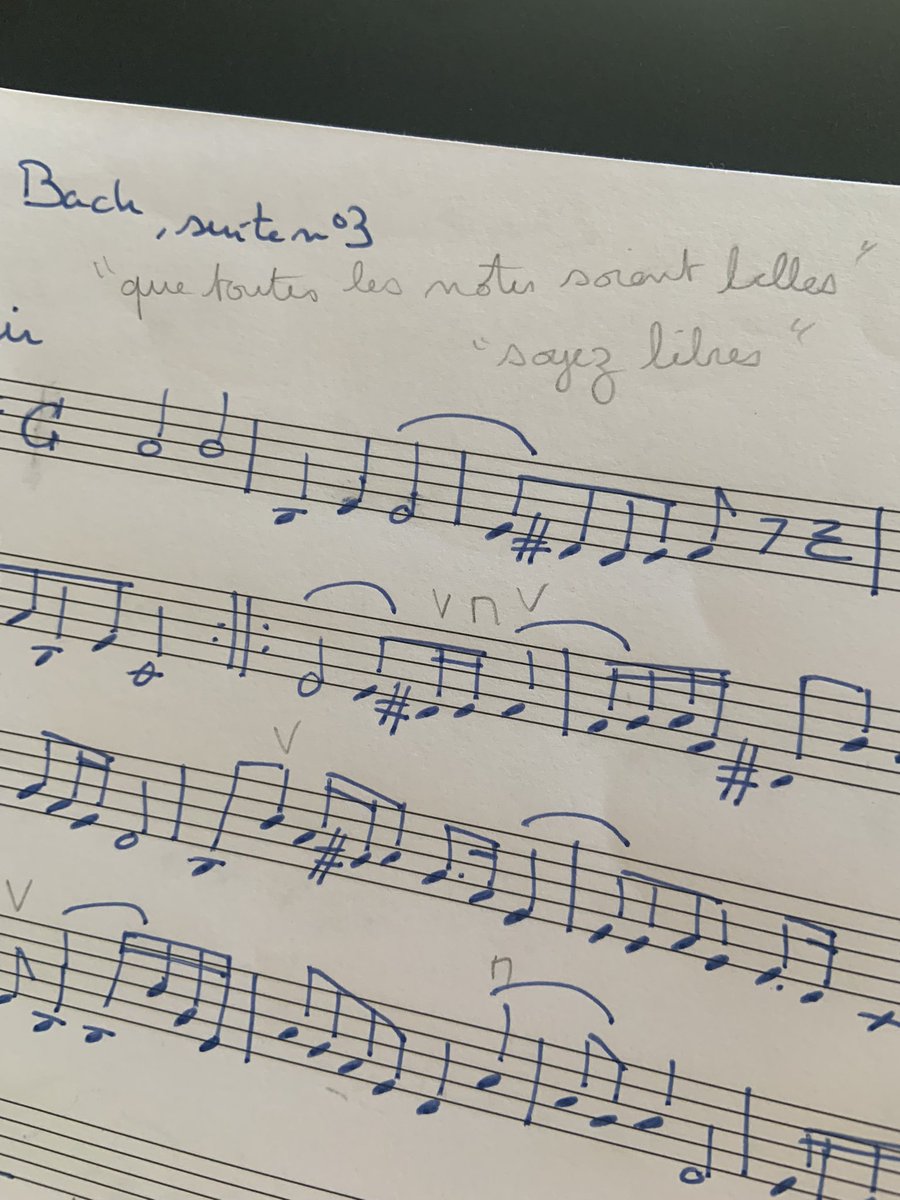 Bach, suite n°3
"que toutes les notes soient belles"
"soyez libres"